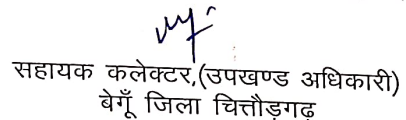 सहायक कलेक्टर,(उपखण्ड अधिकारी)
बेगूँ जिला चित्तौड़गढ़